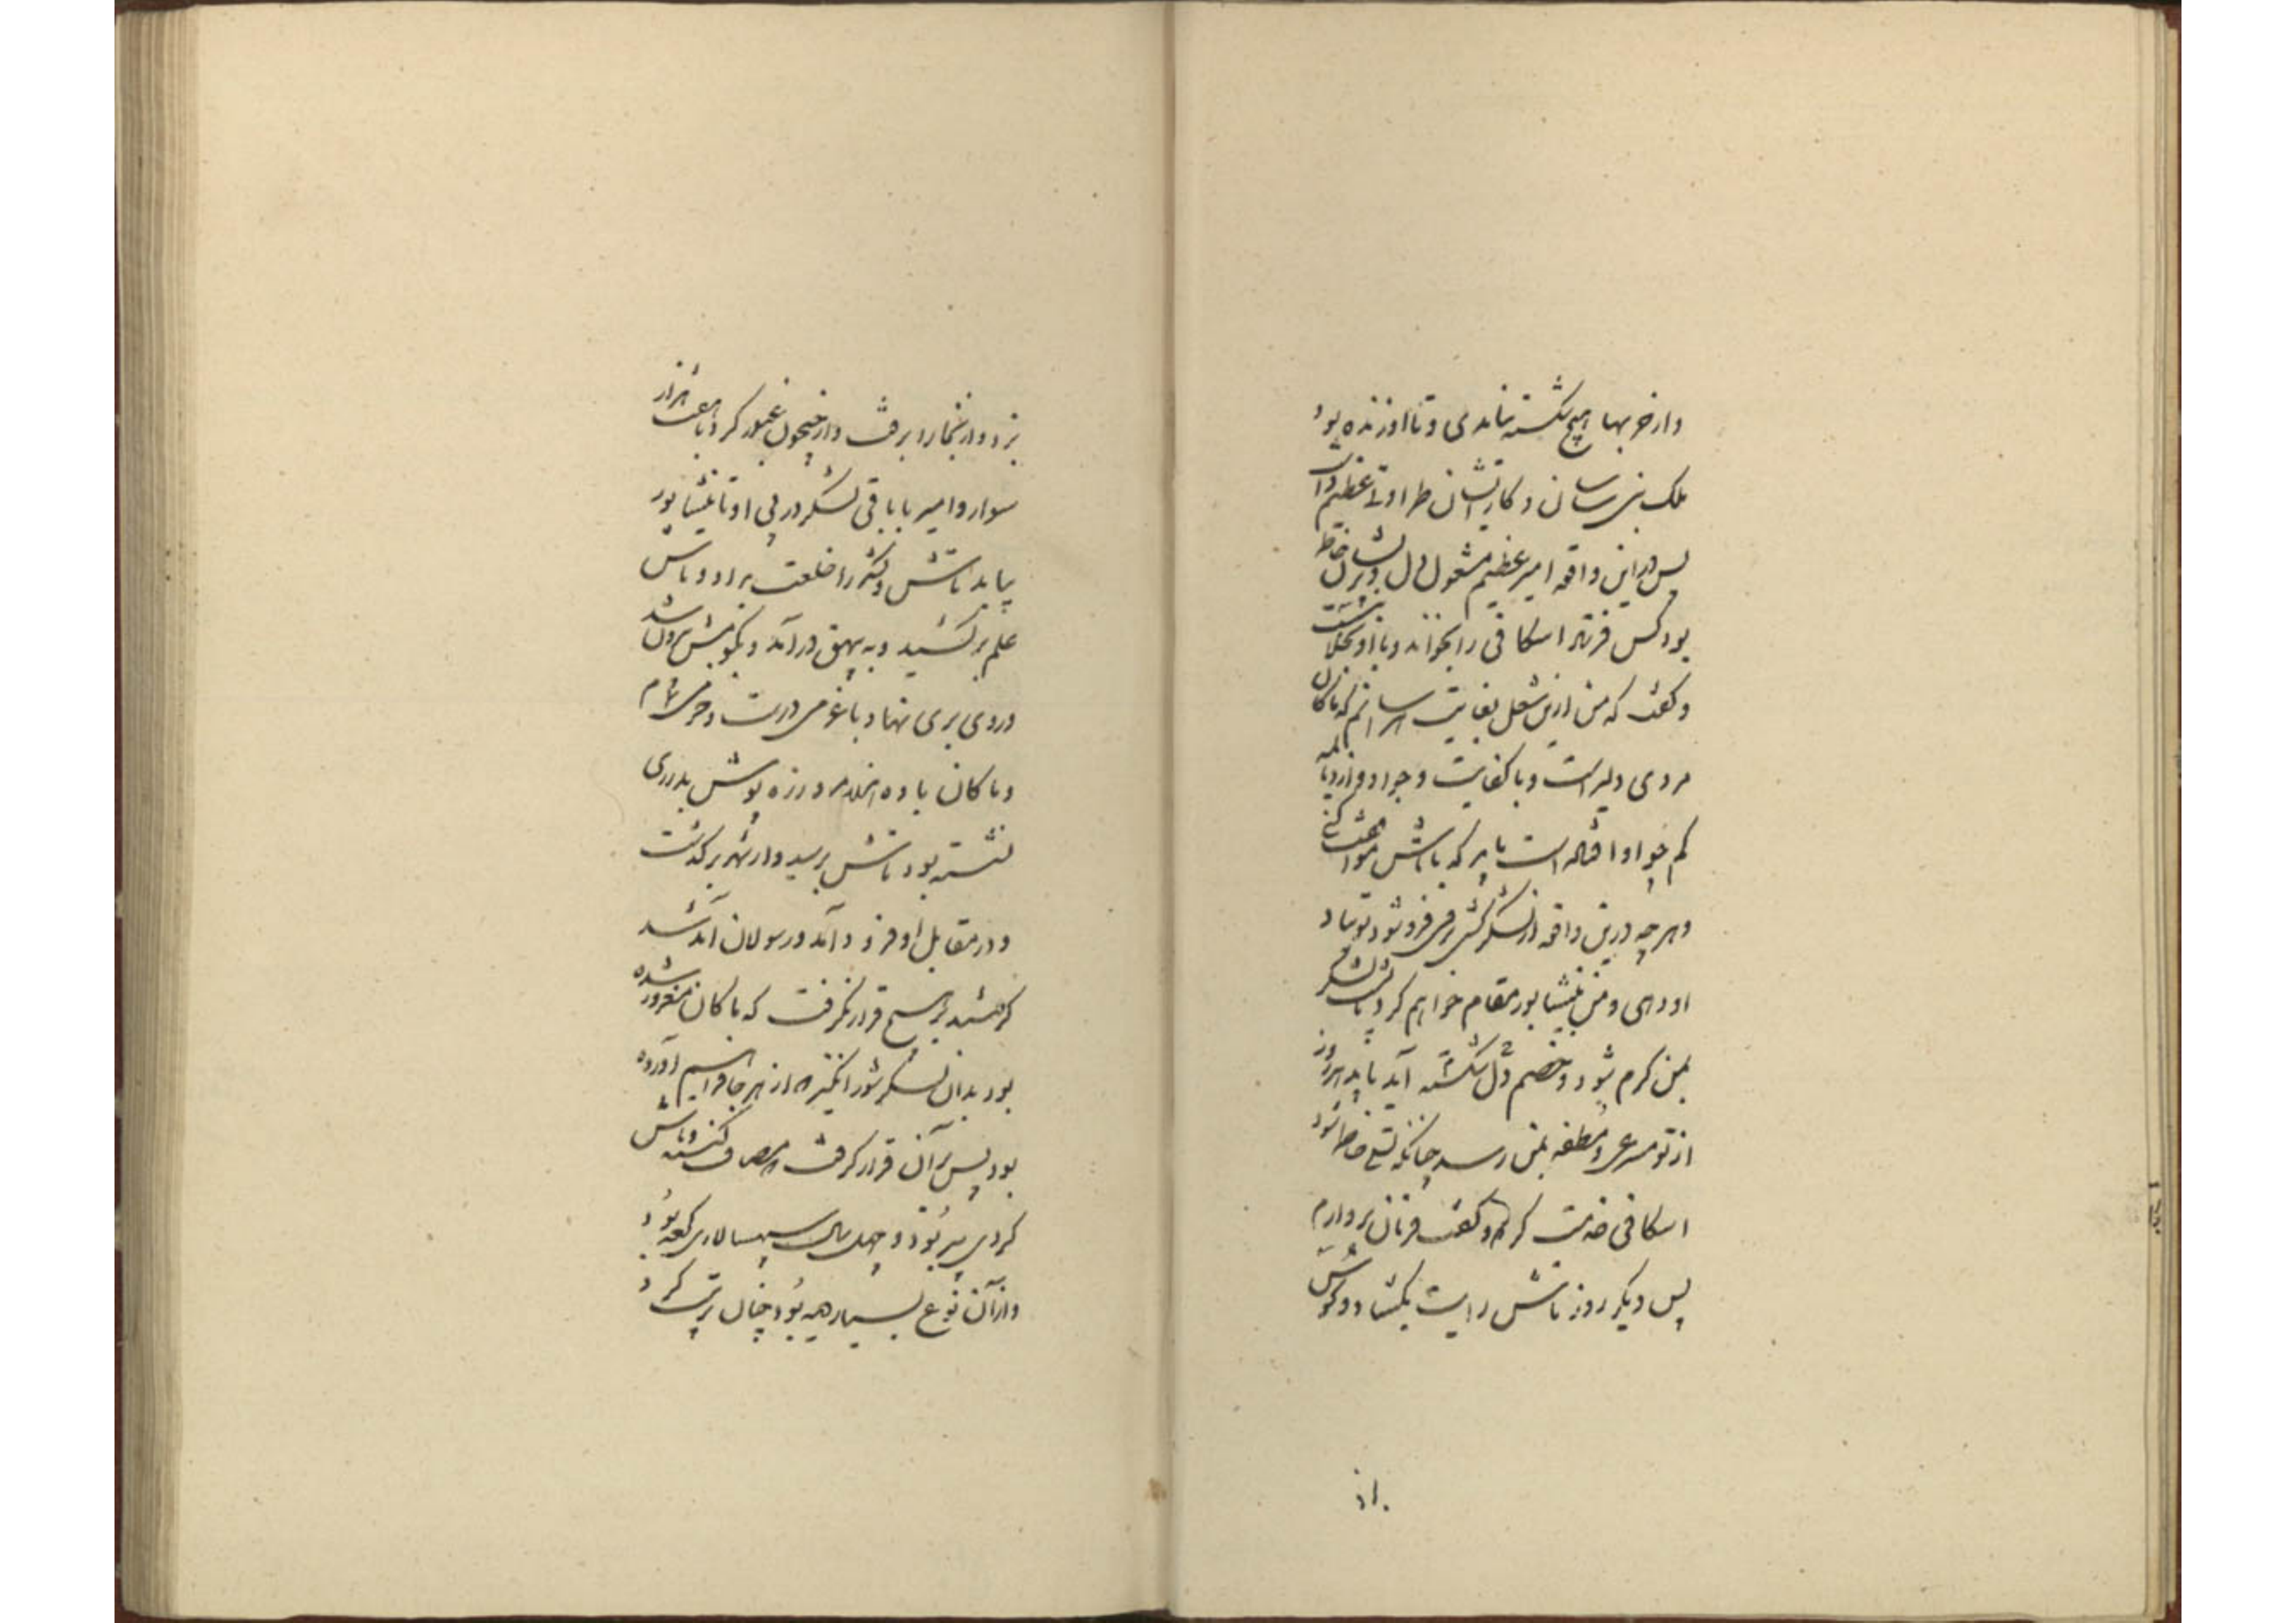 و از حربها هیچ شکسته نیامدی و تا او زنده بود
ملک بنی سامان و کار ایشان طراوتی عظیم داشت
پس در این واقعه امیر عظیم مشغول دل و پریشان خاطر
بود کس فرستاد اسکافی را بخواند و با او بخلوت بنشست
و گفت که من ازین شغل بغایت هراسانم که ماکان
مردی دلیرست و با کفایت و جواد و از دیالمه
کم چو او افتاده است باید که با تاش موافقت کنی
و هرچه درین واقعه از لشکرکشی بر وی فرو شود تو بیاد
او دهی و من بنیشابور مقام خواهم کرد تا پشت لشکر
بمن گرم شود و خصم دل شکسته آید باید هر روز
از تو مسرعی و ملطفه بمن رسد چنانکه تسلی خاطر شود
اسکافی خدمت کرد و گفت فرمان بردارم
پس دیگر روز تاش رایت بگشاد و کوس
بزد و از بخارا برفت و از جیحون عبور کرد با هفت هزار
سوار و امیر با باقی لشکر در پی او تا نیشابور
بیامد تاش و لشکر را خلعت بداد و تاش
علم برکشید و به بیهق درآمد و بکومش بیرون شد
و روی بری نهاد با عزمی درست و حزمی تمام
و ماکان با ده هزار مرد زره پوش بدر ری
نشسته بود تاش برسید و از شهر برگذشت
و در مقابل او فرود آمد و رسولان آمد شد
گرفتند بر هیچ قرار نگرفت که ماکان مغرور شده
بود بدان لشکر شورانگیز که از هر جا فراهم آورده
بود پس بر آن قرار گرفت که مصاف کنند و تاش
گرگی پیر بود و چهل سال سپهسالاری کرده بود
و از آن نوع بسیار دیده بود چنان ترتیب کرد